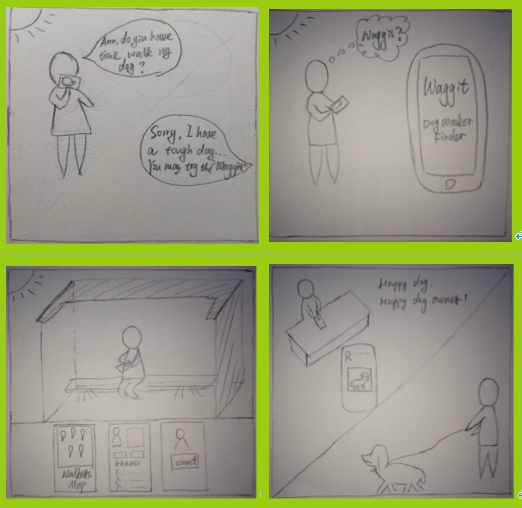 Ann, do you have
time walk my
dog?
Sorry, I have
a tough day...
You may try the Waggit
Waggit?
Waggit
Dog Walker
Finder
Walkers
Map
connect
Happy dog.
Happy dog owner!
R
Send